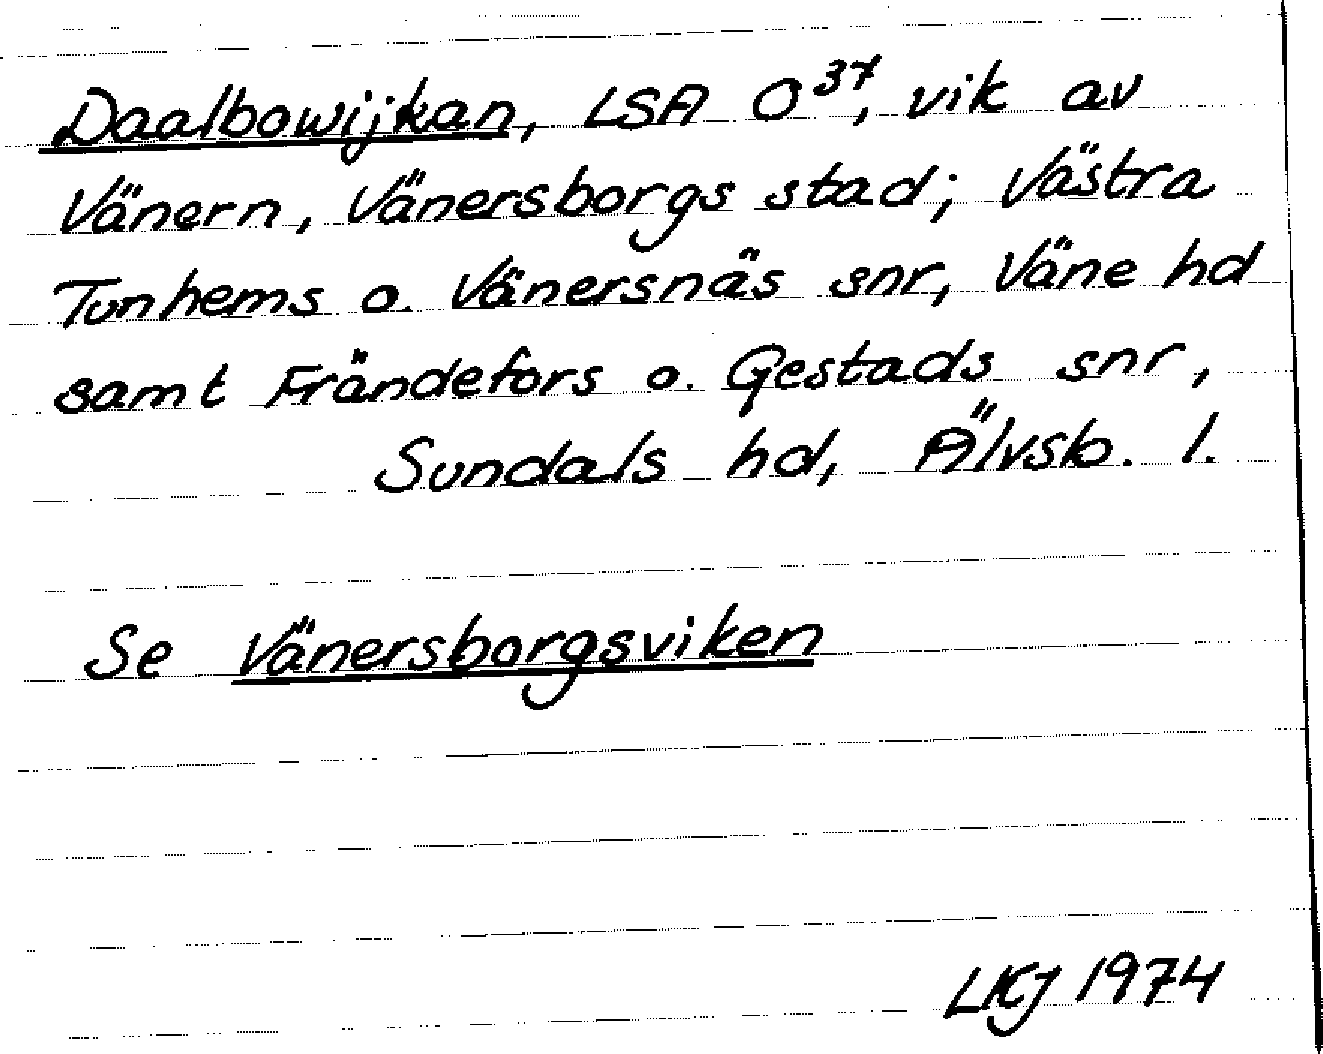 Daalbowijkan, LSA O³⁷, vik av
Vänern, Vänersborgs stad; Västra
Tunhems o. Vänersnäs snr, Väne hd
samt Frändefors o. Gestads snr,
Sundals hd, Älvsb. l.
Se Vänersborgsviken
LKJ 1974